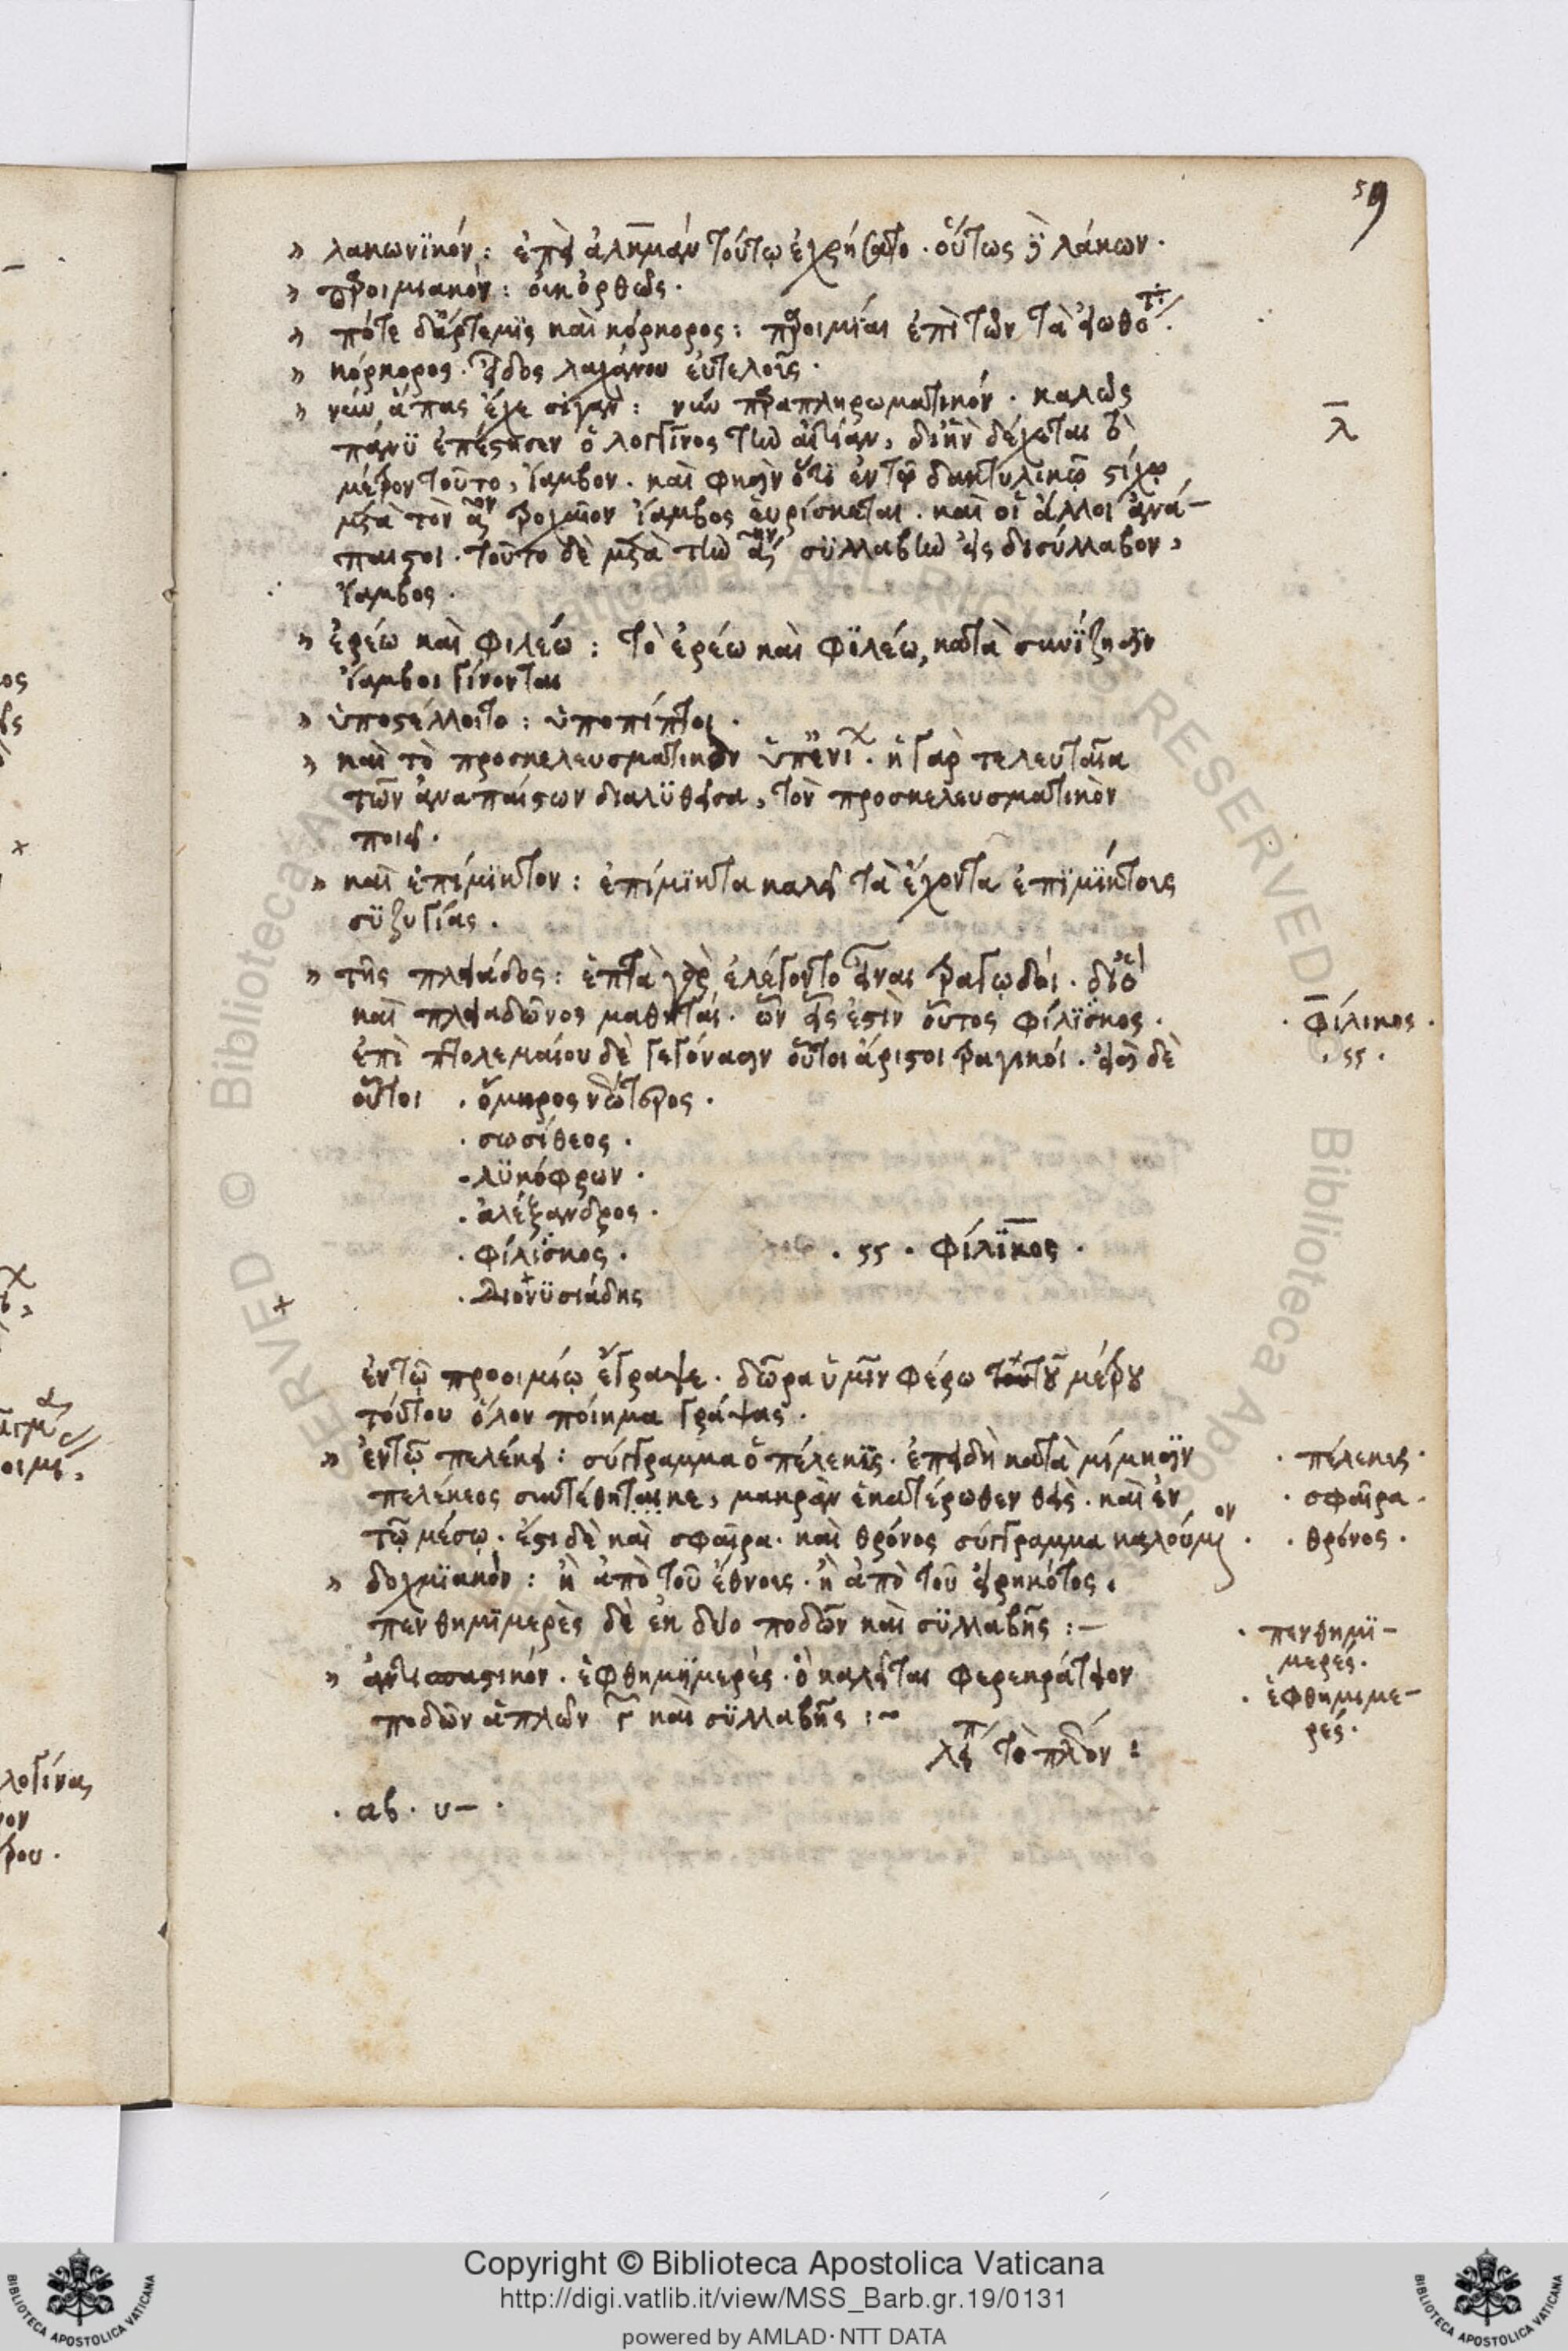 59
» λακωνϊκόν: ἐπεὶ ἀλκμὰν τούτῳ ἐχρήσατο. οὕτως ἦν λάκων.
» παροιμιακόν: οὐκ ὀρθῶς.
» πότε δ᾽ ἄρτεμϊς καὶ κόρκορος: παροιμίαι ἐπὶ τῶν τὰ
» κόρκορος. εἶδος λαχάνου εὐτελοῦς.
» νεὼ ἅπας ἔχε σῖγαν: παραπληρωματικόν. καλῶς
πάνϋ ἐπέστησεν ὁ λογγῖνος τὴν αἰτίαν, δι᾽ ἣν δέχεται τὸ
μέτρον τοῦτο, ἴαμβον. καὶ φησὶν ὅτι ἐν τῷ δακτυλικῷ στίχῳ
μετὰ τὸν αον τροχαῖον ἴαμβος εὑρίσκεται. καὶ οἱ ἄλλοι ἀνά-
παιστοι. τοῦτο δὲ μετὰ τὴν αην συλλαβὴν εἰς δισύλλαβον,
ἴαμβος.
λ
» ἐρέω καὶ φιλέω: τὸ ἐρέω καὶ φϊλέω, κατὰ συνίζησϊν
ἴαμβοι γίνονται
» ὑποστέλλοιτο: ὑποπίπτοι.
» καὶ τὸ προσκελευσματικὸν ἡ γὰρ τελευταία
τῶν ἀναπαίστων διαλϋθεῖσα, τὸν προσκελευσματικὸν
ποιεῖ.
» καὶ ἐπίμϊκτον: ἐπίμϊκτα καλεῖ τὰ ἔχοντα ἐπϊμίκτους
σϋζυγίας.
» τῆς πλειάδος: ἑπτὰ γὰρ ἐλέγοντο εἶναι τραγῳδοί. διὸ
καὶ πλειαδῶνος μαθηταί. ὧν εἷς ἐστὶν οὗτος φίλϊσκος.
ἐπὶ πτολεμαίου δὲ γεγόνασιν οὗτοι ἄριστοι τραγικοί. εἰσὶ δὲ
οὗτοι . ὅμηρος νεώτερος.
. σωσίθεος.
. λϋκόφρων.
. ἀλέξανδρος.
. φίλϊσκος. . ςς . φίλϊκος.
. Διονϋσιάδης
. φίλικος.
. ςς.
ἐν τῷ προοιμίῳ ἔγραψε. δῶρα ὑμῖν φέρω τοῦ μέτρου
τούτου ὅλον ποίημα γράψας.
» ἐν τῷ πελέκει: σύγγραμμα ὁ πέλεκϋς. ἐπειδὴ κατὰ μίμησϊν
πελέκεος μακρὰν ἑκατέρωθεν θεὶς. καὶ ἐν
τῷ μέσῳ. ἔστι δὲ καὶ σφαῖρα. καὶ θρόνος σύγγραμμα καλούμενον.
. πέλεκυς.
. σφαῖρα.
. θρόνος.
» δοχμϊακόν: ἢ ἀπὸ τοῦ ἔθνους. ἢ ἀπὸ τοῦ εὑρηκότος.
πενθημϊμερὲς δὲ ἐκ δύο ποδῶν καὶ σϋλλαβῆς:—
» ἀντισπαστικόν. ἑφθημϊμερές. ὃ καλεῖται φερεκράτειον
ποδῶν ἁπλῶν γ̄ καὶ σϋλλαβῆς:~
. πενθημϊ-
μερές.
. ἑφθημιμε-
ρές.
λείπ τὸ πλέον:
. αβ. υ— .
Copyright © Biblioteca Apostolica Vaticana
http://digi.vatlib.it/view/MSS_Barb.gr.19/0131
powered by AMLAD·NTT DATA